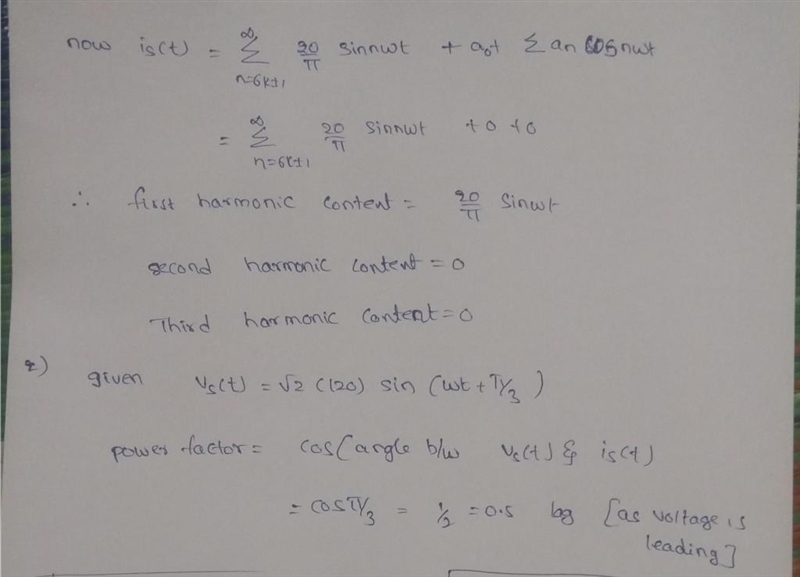 now is(t) = ∞ Σ n=6k±1 20/π sinnωt + a₀+ Σ an cosnωt
= ∞ Σ n=6k±1 20/π sinnωt + 0 + 0
∴ first harmonic content = 20/π sinωt
second harmonic content = 0
Third harmonic content = 0
2) given Vs(t) = √2 (120) sin (ωt + π/3)
power factor = cos(angle b/w Vs(t) & is(t)
= cosπ/3 = 1/2 = 0.5 lag [as voltage is
leading]